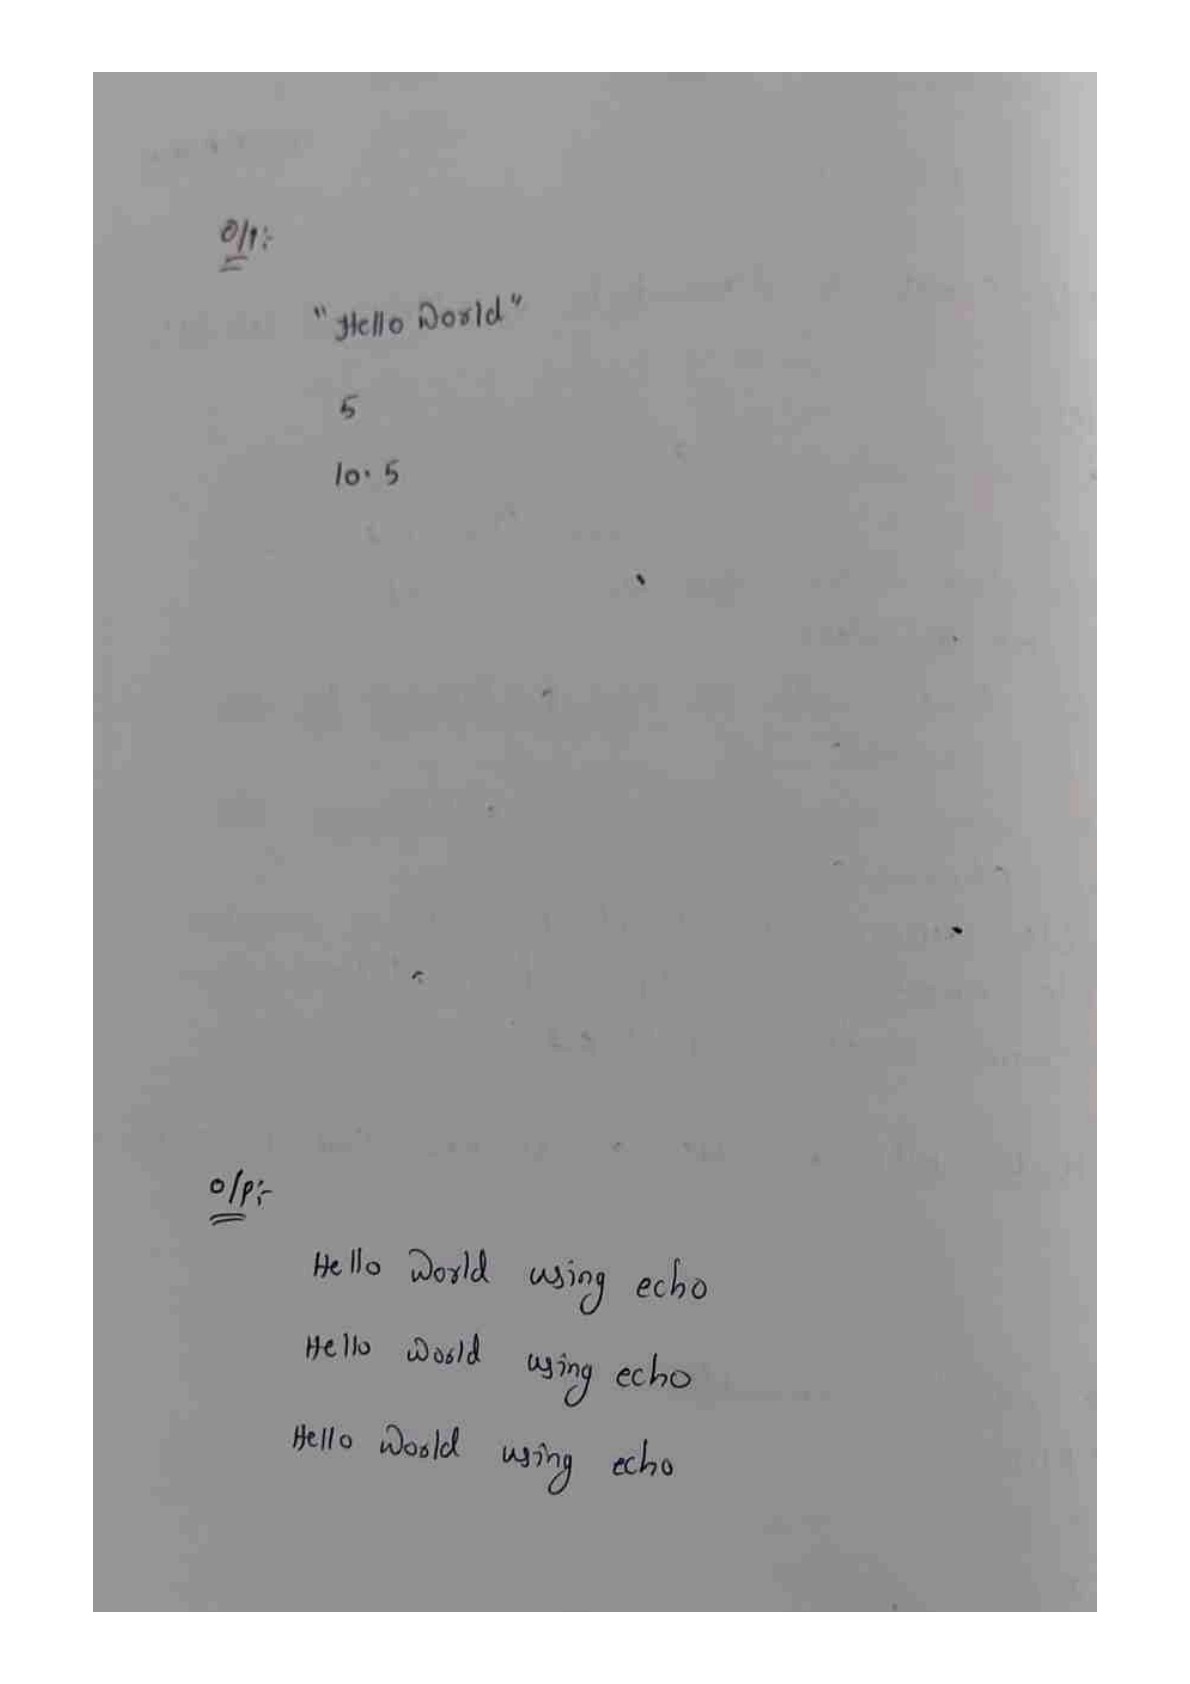 O/P:-
"Hello World"
5
10.5
O/P:-
Hello World using echo
Hello World using echo
Hello World using echo